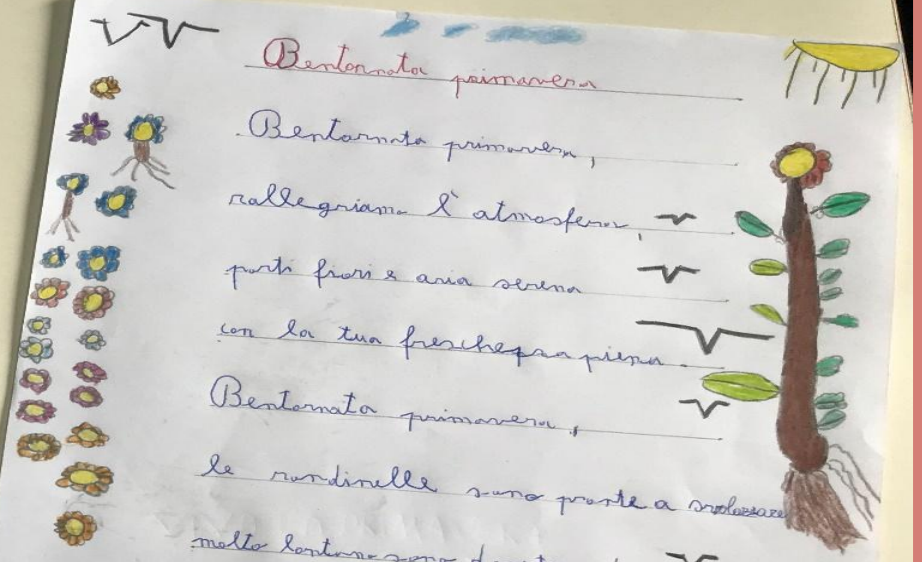 Bentornata primavera
Bentornata primavera,
rallegriamo l'atmosfera,
porti fiori e aria serena
con la tua freschezza piena.
Bentornata primavera,
le rondinelle sono pronte a svolazzare
molto lontano sono